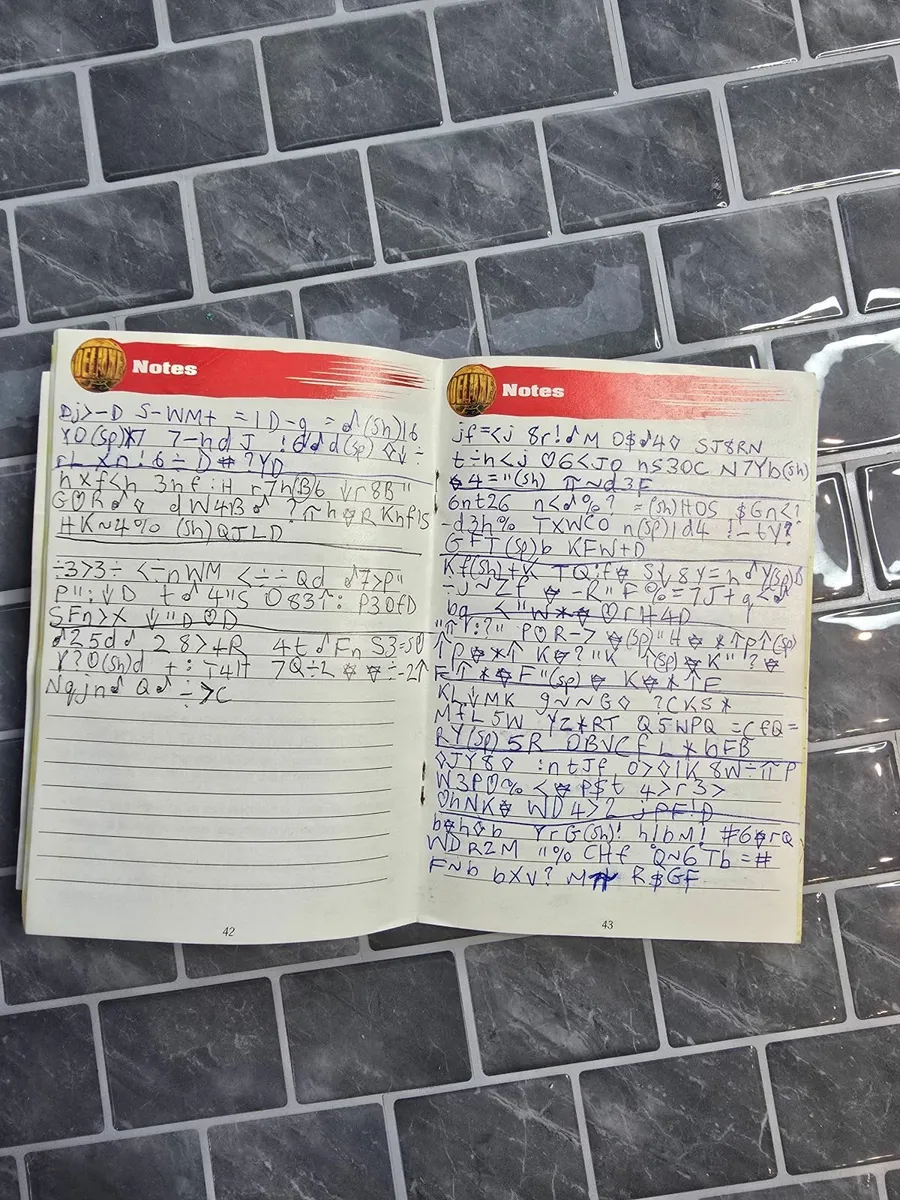 DELUXE
Notes
Dj>-D S-WM+ =1D-q =♪(Sh)16
YO(Sp)*7 7-hdJ !6♪♪d(Sp) ◇↓÷
rL xn!6÷ D#?YD
hxf<h 3nf:H r7h(B)6 ↓r8B"
G♡R♪◇ dW4B♪ ?πh✡R Khf1S
HK~4% (Sh)QJLD
÷3>3÷ <-nWM <÷÷Qd ♪7>P"
P":↓D t♪4"S O83↑: P3OfD
SFn>X ↓"D♡D
♪25d♪ 28>+R 4t♪Fn S3=5♡
Y?O(Sh)d +:T4H 7Q÷2✡✡÷-2↑
Nqjn♪ Q♪÷>C
42
Notes
jf=<j 8r!♪M O$♪4◇ SJ8RN
t÷h<j ♡6<JO hS3OC N7Yb(Sh)
✡4="(Sh) π~d3F
6nt26 n<♪%? =(Sh)HOS $Gn<?
-d3h% TXWCO n(Sp)1d4 !-tY?
GFT(Sp)b KFW+D
Kf(Sh)+K TQ:f✡ S↓8Y= h♪Y(Sp)B
÷J~2f ✡-R"F %=7J+ q<♪^
bq <"W*✡ ♡rH4D
"π9:?" P♡R-> ✡(Sp)"H✡ *↑P↑(Sp)
↑P✡*↑ K✡?"K ↑(Sp)✡K" "?✡
F↑*✡F "(Sp)✡ K✡*↑F
KL↓MK 9~~G◇ ?CKS*
MfL5W YZ*RT Q5WPQ =CfQ=
RY(Sp)5R OBVCf L*hFB
◇JY8◇ :ntJf O>◇1K 8W÷πP
W3P♡% <✡P$t 4>r3>
♡hNK✡ WD4>2 jPF!D
b✡h◇b YrG(Sh)! h!bM! #6✡rQ
WDR2M "%CHf Q~6Tb =#
F~b bXV? Mπ R$Gf
43